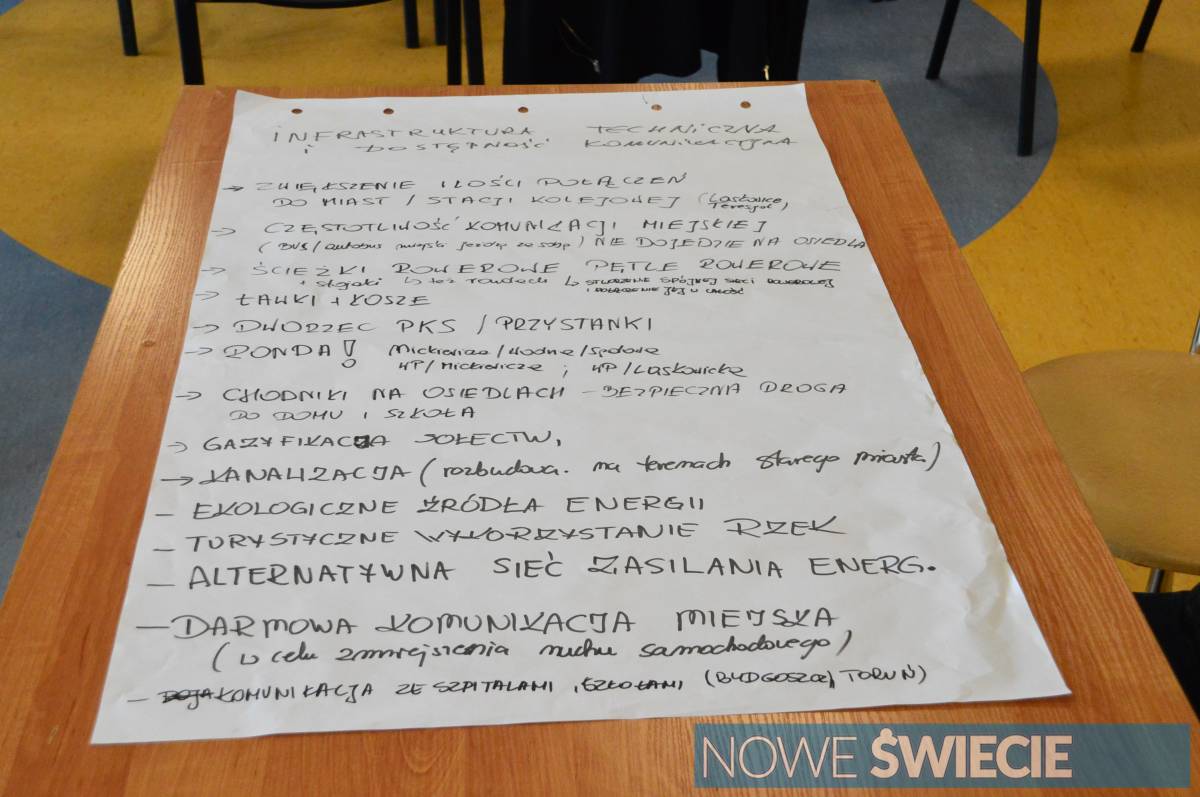 INFRASTRUKTURA TECHNICZNA
i DOSTĘPNOŚĆ KOMUNIKACYJNA
→ ZWIĘKSZENIE ILOŚCI POŁĄCZEŃ
DO MIAST / STACJI KOLEJOWEJ (Laskowice
Terespol)
→ CZĘSTOTLIWOŚĆ KOMUNIKACJI MIEJSKIEJ
(BUS/autobus miejski jeżdżą za sobą) NIE DOJEDZIE NA OSIEDLA
→ ŚCIEŻKI ROWEROWE PĘTLE ROWEROWE
+ stojaki ↳ też rondach ↳ STWORZENIE SPÓJNEJ SIECI ROWEROWEJ
I POŁĄCZENIE JEJ W CAŁOŚĆ
→ ŁAWKI + KOSZE
→ DWORZEC PKS / PRZYSTANKI
→ RONDA! Mickiewicza/Wodna/Sądowa
WP/Mickiewicza ; WP/Laskowicka
→ CHODNIKI NA OSIEDLACH - BEZPIECZNA DROGA
DO DOMU I SZKOŁA
→ GAZYFIKACJA SOŁECTW,
→ KANALIZACJA (rozbudowa. na terenach starego miasta)
- EKOLOGICZNE ŹRÓDŁA ENERGII
- TURYSTYCZNE WYKORZYSTANIE RZEK
- ALTERNATYWNA SIEĆ ZASILANIA ENERG.
- DARMOWA KOMUNIKACJA MIEJSKA
(w celu zmniejszenia ruchu samochodowego)
- KOMUNIKACJA ZE SZPITALAMI, SZKOŁAMI (BYDGOSZCZ, TORUŃ)
NOWE ŚWIECIE